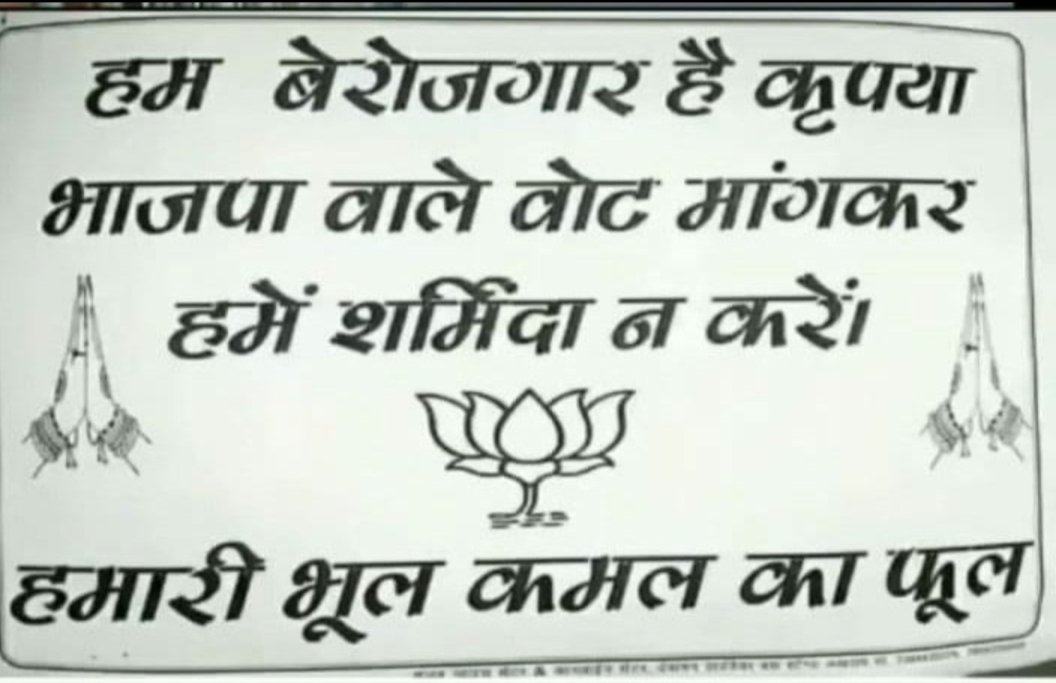 हम बेरोजगार है कृपया
भाजपा वाले वोट मांगकर
हमें शर्मिंदा न करें।
हमारी भूल कमल का फूल